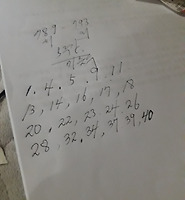 789 - 793
1. 4. 5. 9. 11
13, 14, 16, 17, 18
20, 22, 23, 24, 26
28, 32, 34, 37, 39, 40